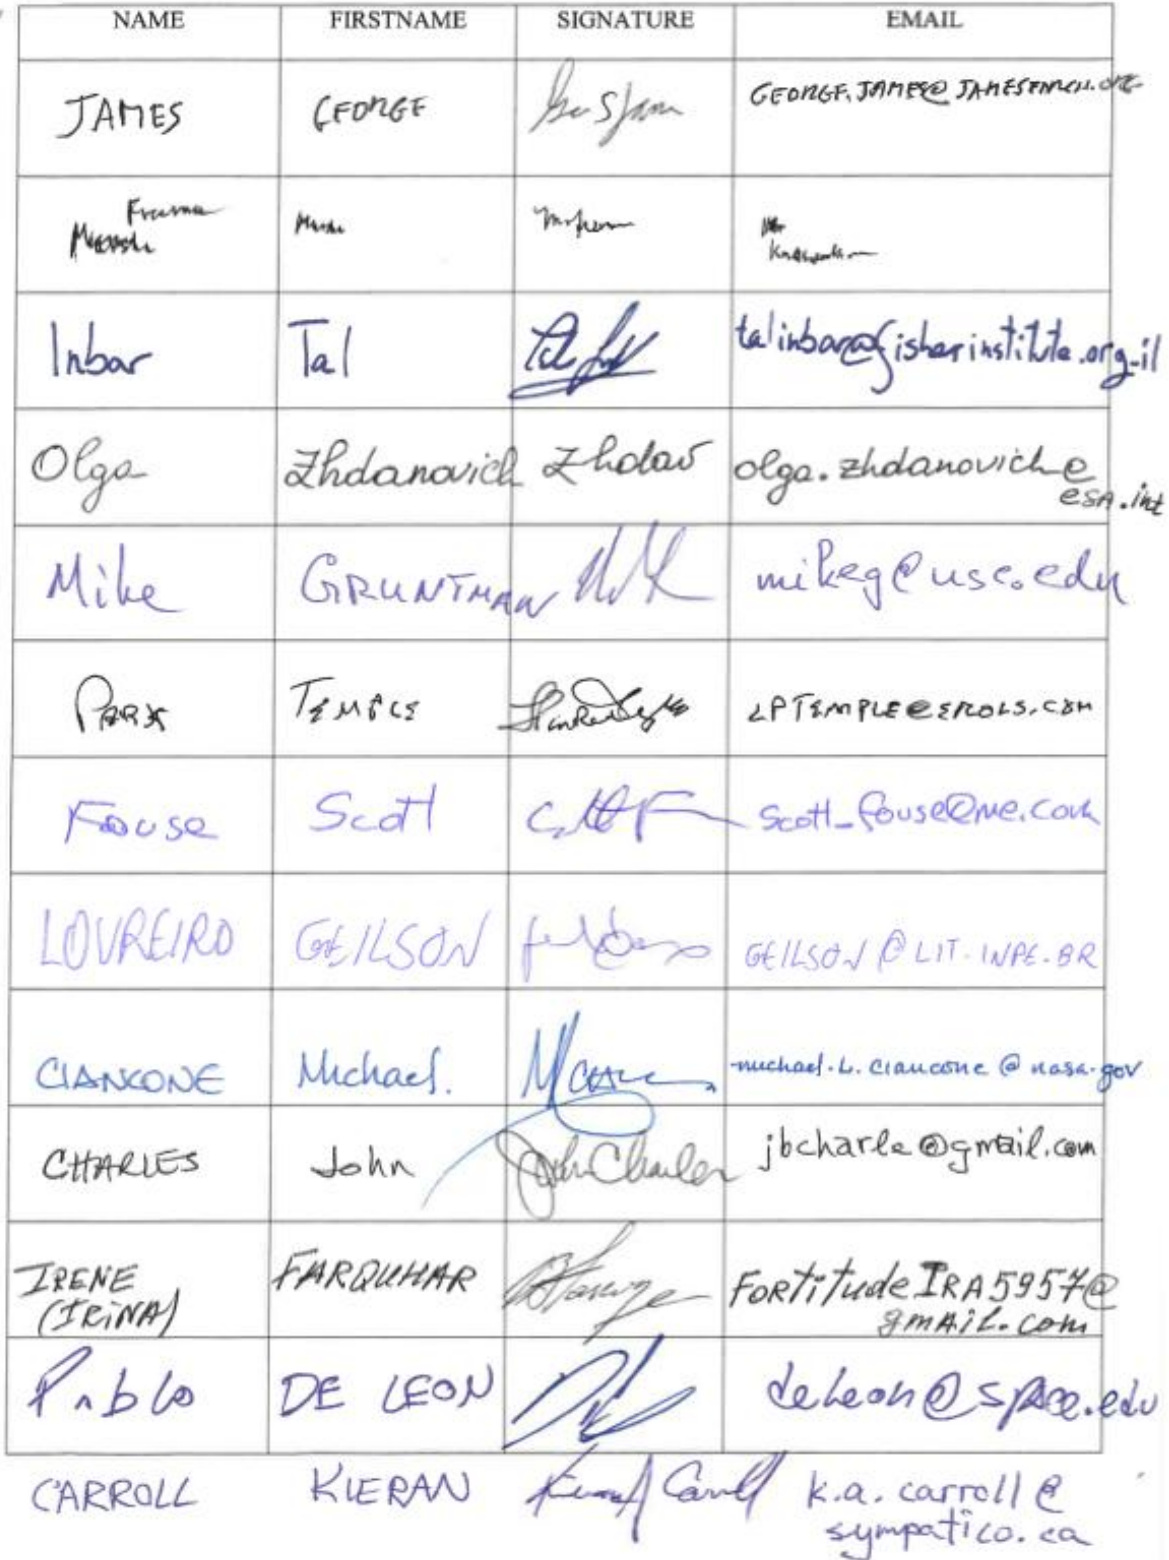 NAME FIRSTNAME SIGNATURE EMAIL
JAMES GEORGE GEORGE.JAMES@
Inbar Tal talinbar@fisherinstitute.org.il
Olga Zhdanovich Zhdav olga.zhdanovich@
esa.int
Mike GRUNTMAN mikeg@usc.edu
PARK TEMPLE LPTEMPLE@EROLS.COM
Fouse Scott scott_fouse@me.com
LOUREIRO GEILSON GEILSON@LIT.INPE.BR
CIANCONE Michael. michael.L.ciancone@nasa.gov
CHARLES John John Charles jbcharle@gmail.com
IRENE FARQUHAR FORTitudeIRA5957@
(IRINA) gmail.com
Pablo DE LEON deleon@space.edu
CARROLL KIERAN Kieran A Carroll k.a.carroll@
sympatico.ca